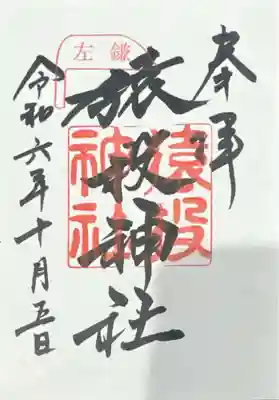 奉拝
左鎌
猿投神社
猿投
神社
令和六年十月五日